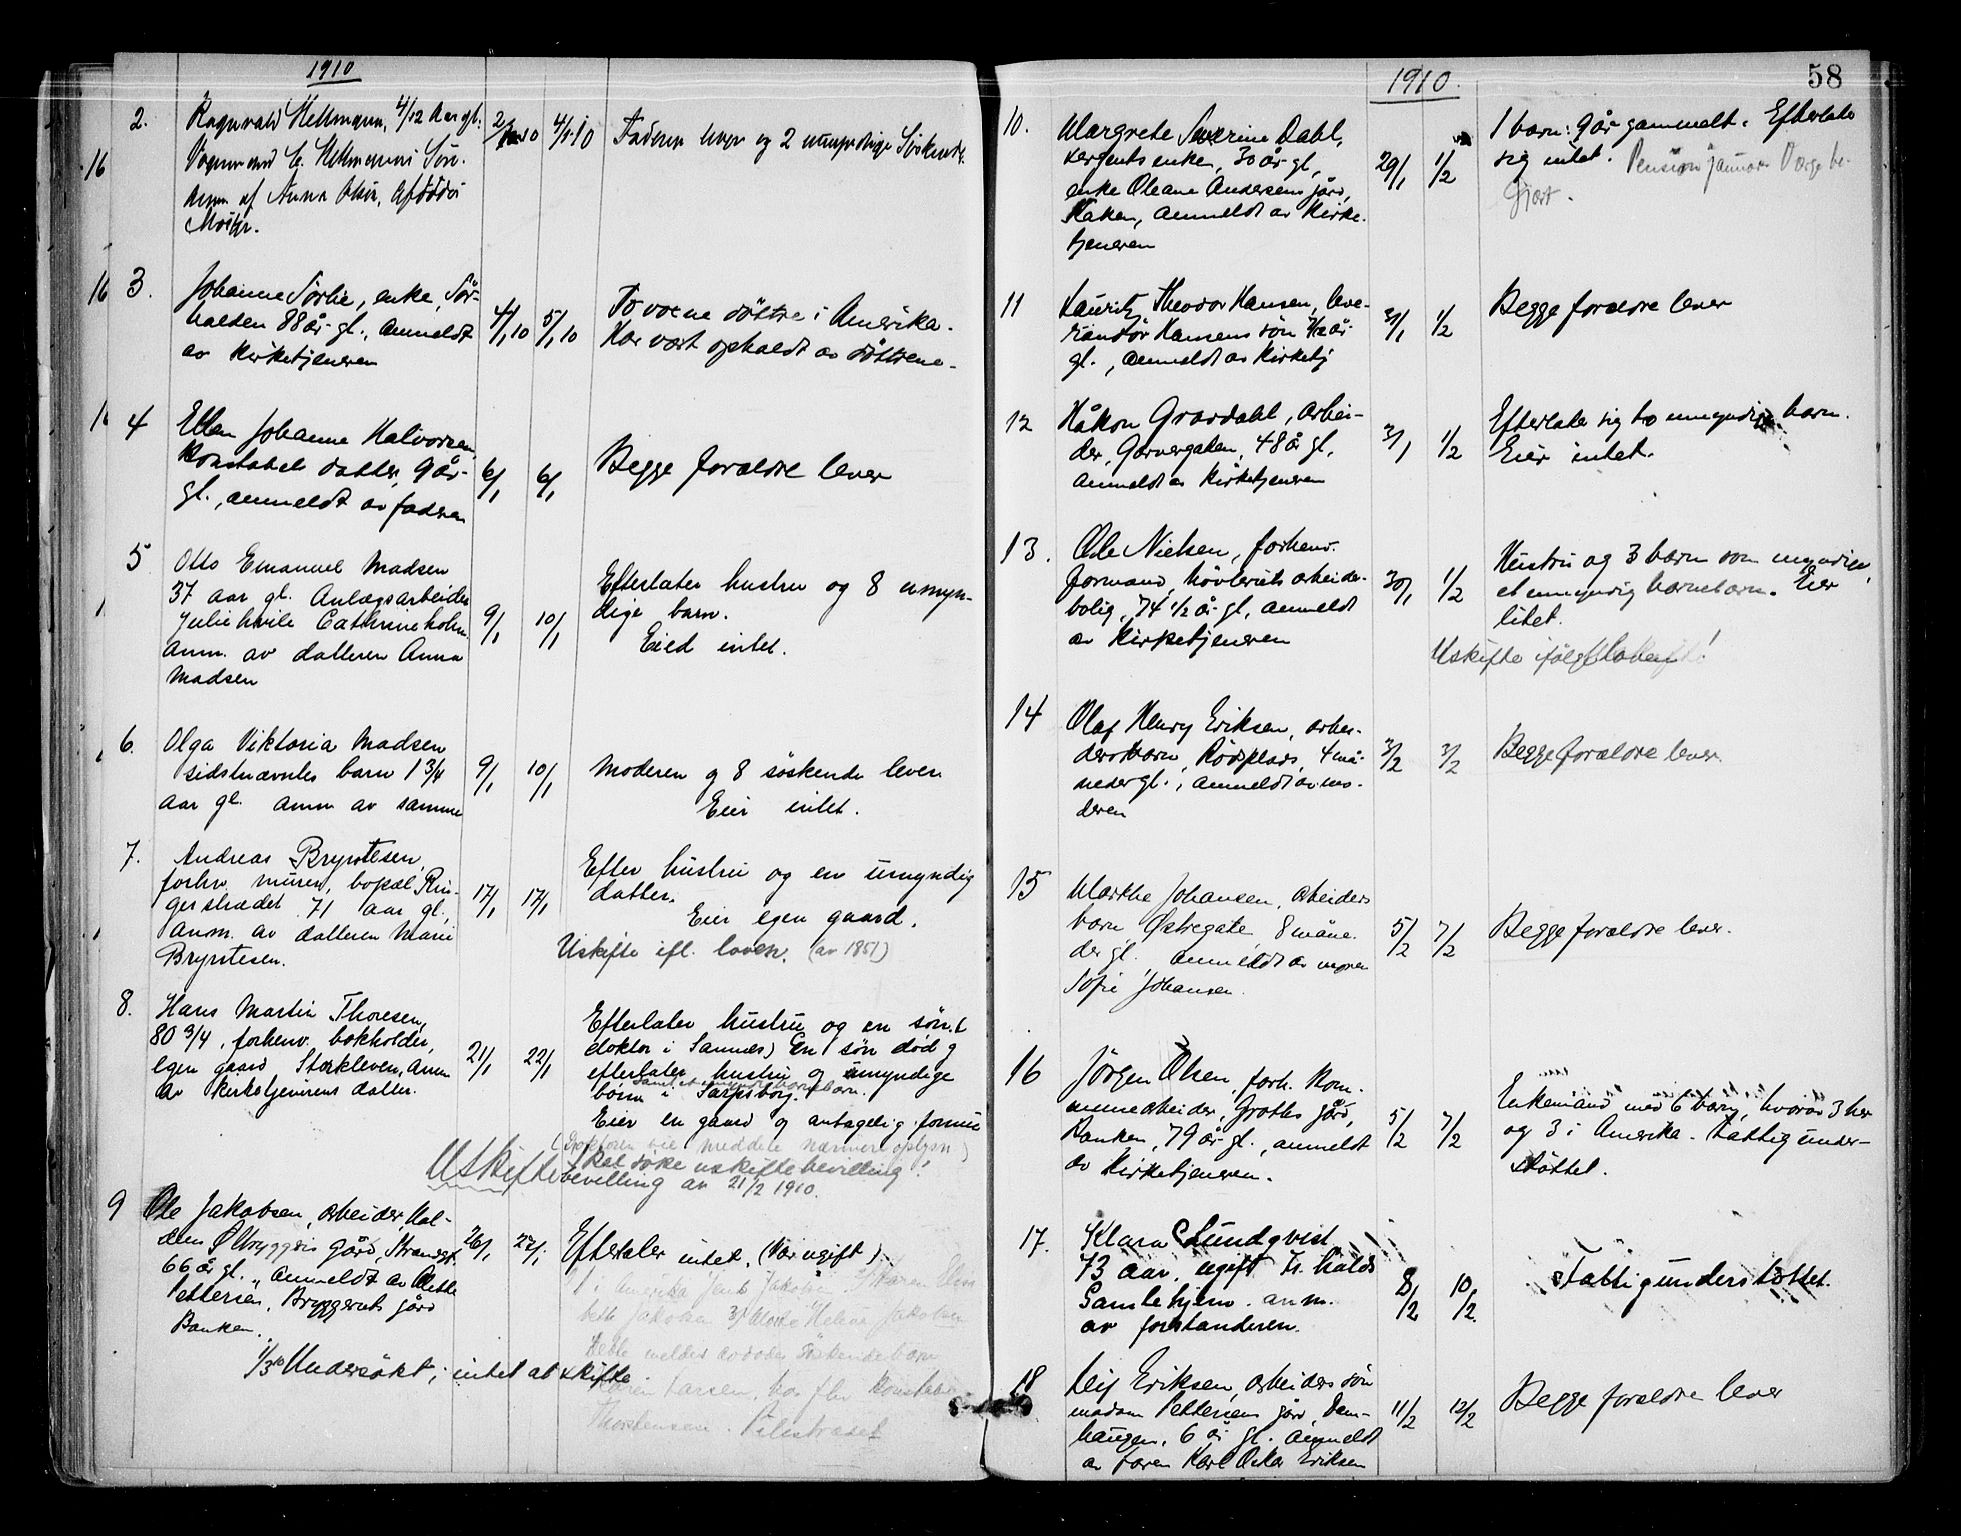 1910
2. Ragnvald Hellmann, 4/12 Aar gl. 2/1 10 4/1 10 Faderen lever og 2 umyndige Söskende.
16 Vognmand C. Hellmanns Sön.
anm af Anna Olsen, Afdödes
Moster.
16 3. Johanne Sörlie, enke, Sör-
halden 88 år gl., anmeldt 4/1 10 5/1 10 To voxne döttre i Amerika.
av kirketjeneren Har vært opholdt av döttrene.
4 Ellen Johanne Halvorsen
Konstabels datter, 9 år 6/1 6/1 Begge forældre lever
gl., anmeldt av faderen
5 Otto Emanuel Madsen
37 aar gl. Anlægsarbeider Efterlater hustru og 8 umyn-
Juliehvile Cathrineholm. 9/1 10/1 dige barn.
anm. av datteren Anna Eied intet.
Madsen
6. Olga Viktoria Madsen
sidstnævntes barn 1 3/4 9/1 10/1 Moderen og 8 söskende lever
aar gl. anm av samme Eier intet.
7. Andreas Brynstesen,
forhv. murer, bopæl Rin- Efter hustru og en umyndig
gerstrædet 71 aar gl., 17/1 17/1 datter.
anm. av datteren Marie Eier egen gaard.
Brynstesen. Uskifte ifl. loven. (av 1851)
8. Hans Martin Thoresen,
80 3/4, forhenv. bokholder, Efterlater hustru og en sön (
egen gaard Storkleven, Anm 21/1 22/1 doktor i Sannes) En sön död og
av kirketjenerens datter. efterlater hustru og umyndige
börn i Sarpsborg.
Eier en gaard og antagelig formue
(Doktoren vil meddele nærmere oplysn)
Skal söke uskiftebevilling!
Uskiftebevilling av 21/2 1910.
9 Ole Jakobsen, arbeider, Hal-
dens Ölbryggeris gård, Strandgt. 26/1 27/1 Efterlater intet. (Var ugift)
66 år gl. Anmeldt av Olette
Pettersen, Bryggeriets gård 1 i Amerika Jens Jakobsen
Banken. Helene Jakobsen
Dette meldes av dödes Söskendebarn
1/3 10 Undersökt; intet at skifte
Karen Larsen, hos fhv Konstabel
Thorstensen. Pilestrædet
1910. 58
10. Margrete Severine Dahl, 1 barn: 9 år gammelt. Efterlater
sergents enke, 30 år gl, 29/1 1/2 sig intet. Pension Januar Værge be-
enke Oleane Andersens gård, gjært.
Raken, anmeldt av kirke-
tjeneren
11 Lauritz Theodor Hansen, leve- Begge forældre lever
randör Hansens sön 7/12 år 31/1 1/2
gl., anmeldt av kirketj
12 Håkon Grardahl, arbei- Efterlater sig to umyndige barn.
der, Garvergaten, 48 år gl, 31/1 1/2 Eier intet.
anmeldt av kirketjeneren
13. Ole Nielsen, forhenv. Hustru og 3 barn som myndige,
formand, hövleriets arbeider- 30/1 1/2 et umyndig barnebarn. Eier
bolig, 74 1/2 år gl, anmeldt litet.
av kirketjeneren Uskifte ifölge loven!
14 Olaf Henry Eriksen, arbei-
dersbarn, Rödsplads, 4 må- 3/2 3/2 Begge forældre lever.
neder gl., anmeldt av mo-
deren
15 Marthe Johansen, arbeiders
barn Östregate, 8 måne- 5/2 7/2 Begge forældre lever.
der gl. anmeldt av moren
Sofie Johansen.
16 Jörgen Olsen, forh. kom-
munearbeider, Groths gård, 5/2 7/2 Enkemand med 6 barn, hvorav 3 her
Banken, 79 år gl., anmeldt og 3 i Amerika. Fattigunder-
av kirketjeneren. støttet.
17. Klara Lundqvist
73 aar, ugift Fr. halds 8/2 10/2. Fattigunderstøttet.
Gamlehjem. anm.
av forstanderen.
18 Leif Eriksen, arbeiders sön
madam Pettersens gård, Dam- 11/2 12/2 Begge forældre lever
haugen, 6 år gl. anmeldt
av faren Karl Oskar Eriksen